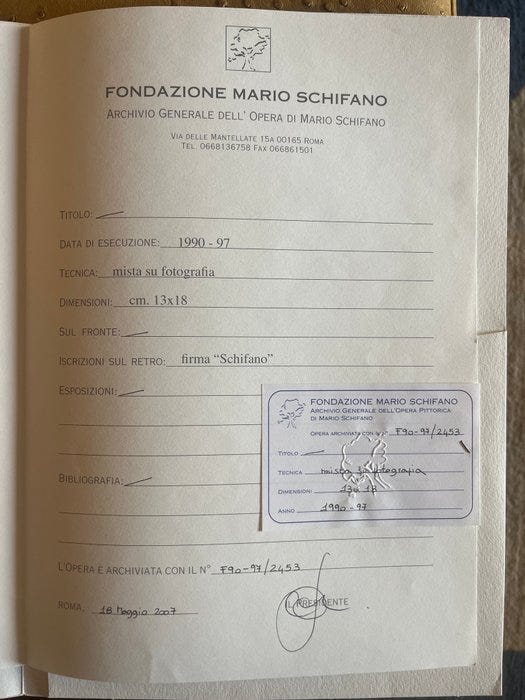 FONDAZIONE MARIO SCHIFANO
ARCHIVIO GENERALE DELL' OPERA DI MARIO SCHIFANO
VIA DELLE MANTELLATE 15A 00165 ROMA
TEL. 0668136758 FAX 066861501
TITOLO:
DATA DI ESECUZIONE: 1990 - 97
TECNICA: mista su fotografia
DIMENSIONI: cm. 13x18
SUL FRONTE:
ISCRIZIONI SUL RETRO: firma “Schifano”
ESPOSIZIONI:
BIBLIOGRAFIA:
FONDAZIONE MARIO SCHIFANO
ARCHIVIO GENERALE DELL'OPERA PITTORICA
DI MARIO SCHIFANO
OPERA ARCHIVIATA CON IL N° F90-97/2453
TITOLO
TECNICA mista su fotografia
DIMENSIONI 13x18
ANNO 1990-97
L'OPERA È ARCHIVIATA CON IL N° F90-97/2453
ROMA, 18 Maggio 2007
IL PRESIDENTE